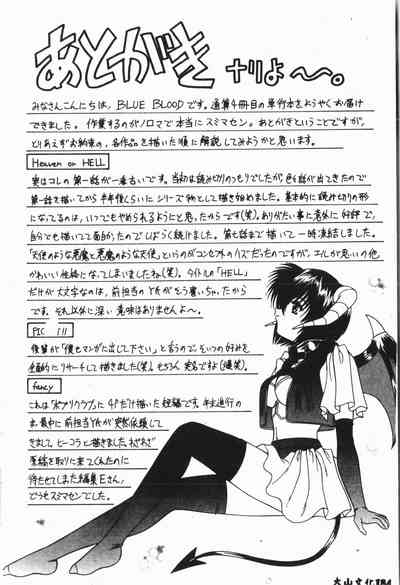 あとがき ナリよ〜〜。
みなさんこんにちは、BLUE BLOODです。通算4冊目の単行本をようやくお届け
できました。作業するのがノロマで本当にスミマセン。あとがきということですが、
とりあえずお約束の、各作品を描いた順に解説してみようかと思います。
Heaven or HELL
実はコレの第一話が一番古いです。当初は読み切りのつもりでしたが、色々話が出てきたので
第一話を描いてから半年後くらいにシリーズ物として描き始めました。基本的に読み切りの形
になってるのは、いつでもやめられるようにと思ったからです(笑)。ありがたい事に意外に好評で、
自分でも描いてて面白かったのでしばらく続けました。第七話まで描いて一時凍結しました。
「天使のような悪魔と悪魔のような天使」というのがコンセプトのハズだったのですが、エルが思いの他
かわいい性格になってしまいましたね(笑)。タイトルの「HELL」
だけが大文字なのは、前担当のYKがそう書いちゃったから
です。それ以外に深い意味はありませんよ〜。
PIC !!!
後輩が「僕もマンガに出して下さい」と言うので、そいつの好みを
全面的にリサーチして描きました(笑)。もちろん実名ですね(爆笑)。
fancy
これは「ポプリクラブ」に4Pだけ描いた短編です。年末進行の
お最中に前担当YKが突然依頼して
きまして ヒーコラと描きました
原稿を取りに来てくれたのに
待たせてしまった編集Eさん、
どうもスミマセンでした。